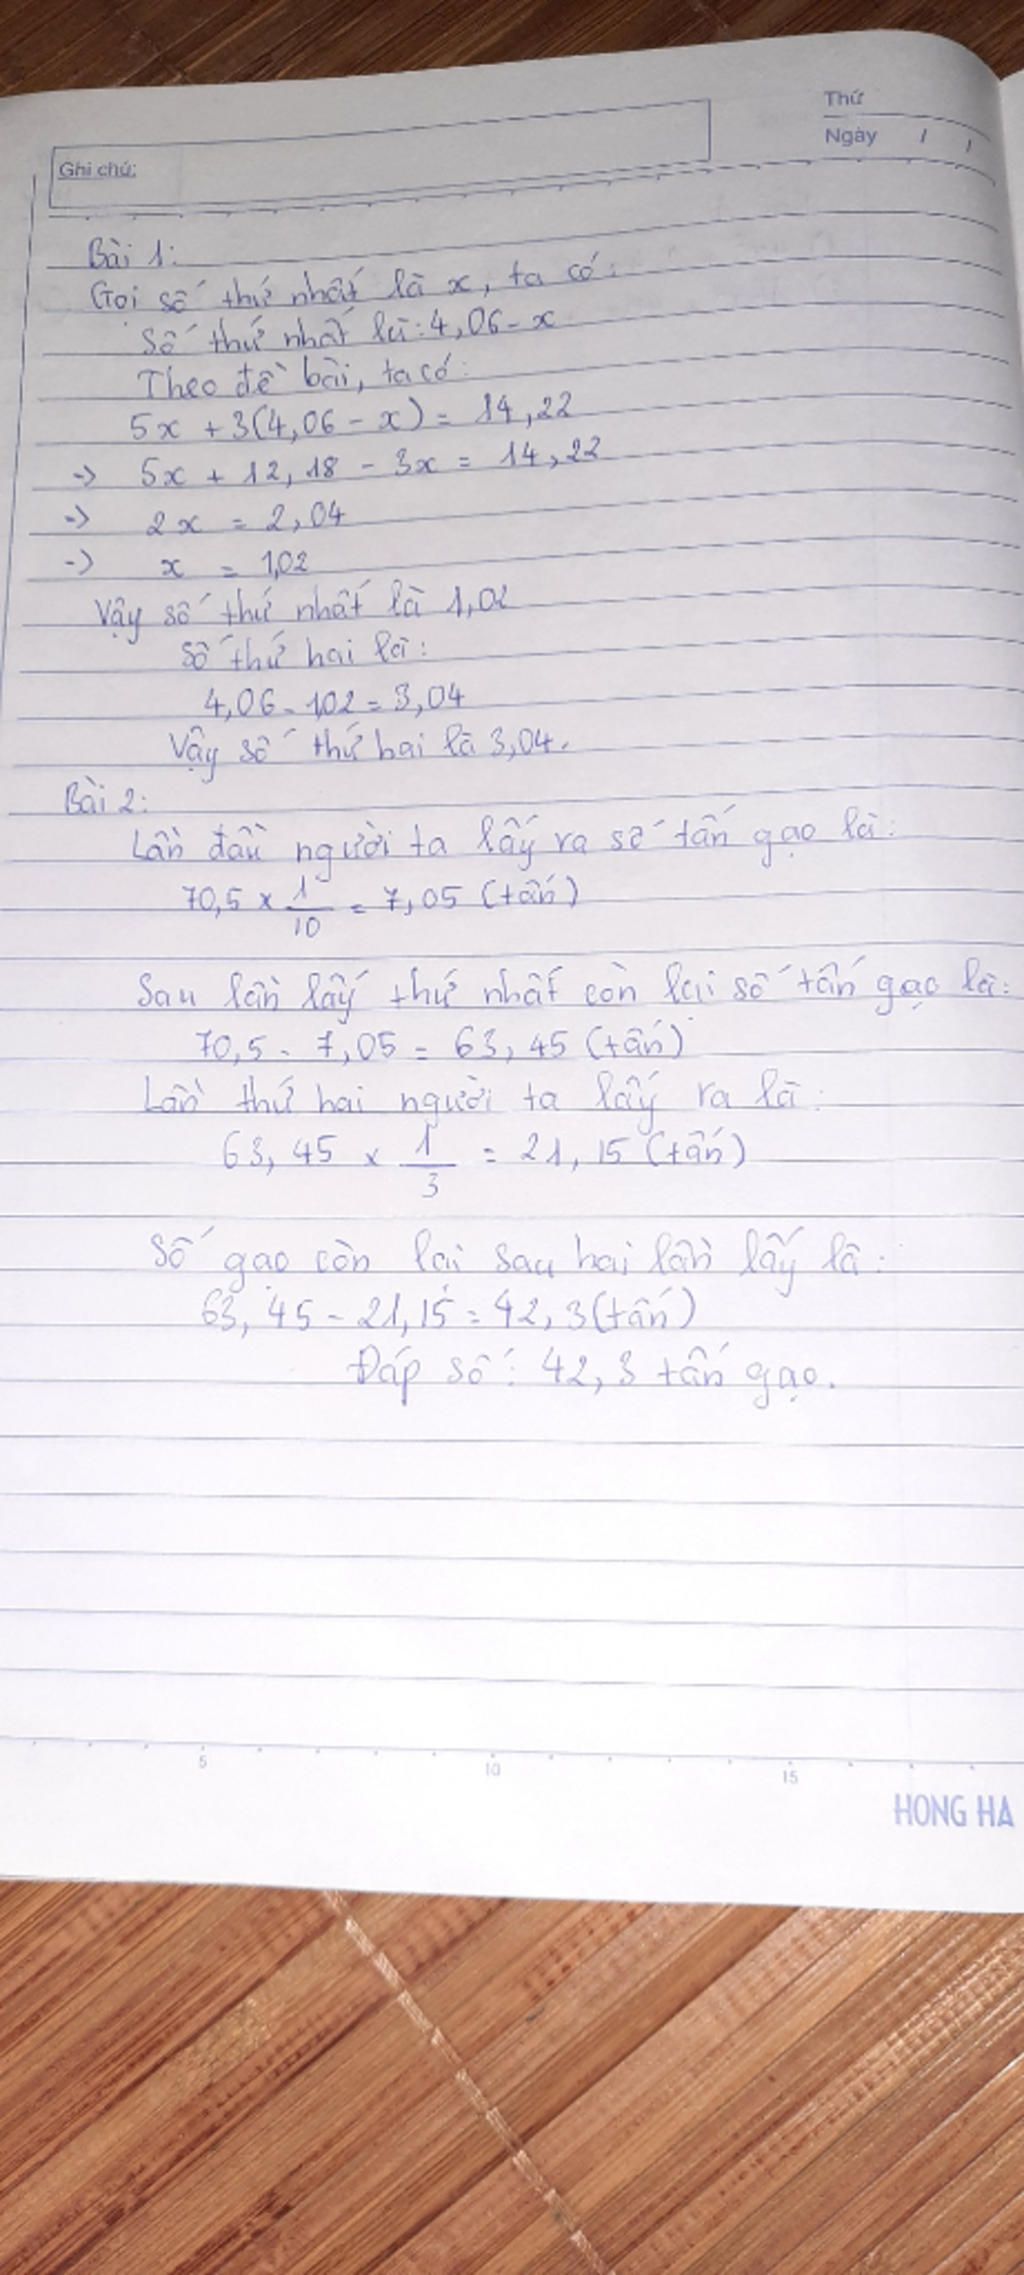 Thứ
Ngày / /
Ghi chú:
Bài 1:
Gọi số thứ nhất là x, ta có:
Số thứ nhất là: 4,06 - x
Theo đề bài, ta có:
5x + 3(4,06 - x) = 14,22
-> 5x + 12,18 - 3x = 14,22
-> 2x = 2,04
-> x = 1,02
Vậy số thứ nhất là 1,02
Số thứ hai là:
4,06 - 1,02 = 3,04
Vậy số thứ hai là 3,04.
Bài 2:
Lần đầu người ta lấy ra số tấn gạo là:
70,5 x 1/10 = 7,05 (tấn)
Sau lần lấy thứ nhất còn lại số tấn gạo là:
70,5 - 7,05 = 63,45 (tấn)
Lần thứ hai người ta lấy ra là:
63,45 x 1/3 = 21,15 (tấn)
Số gạo còn lại sau hai lần lấy là:
63,45 - 21,15 = 42,3 (tấn)
Đáp số: 42,3 tấn gạo.
5 10 15
HONG HA